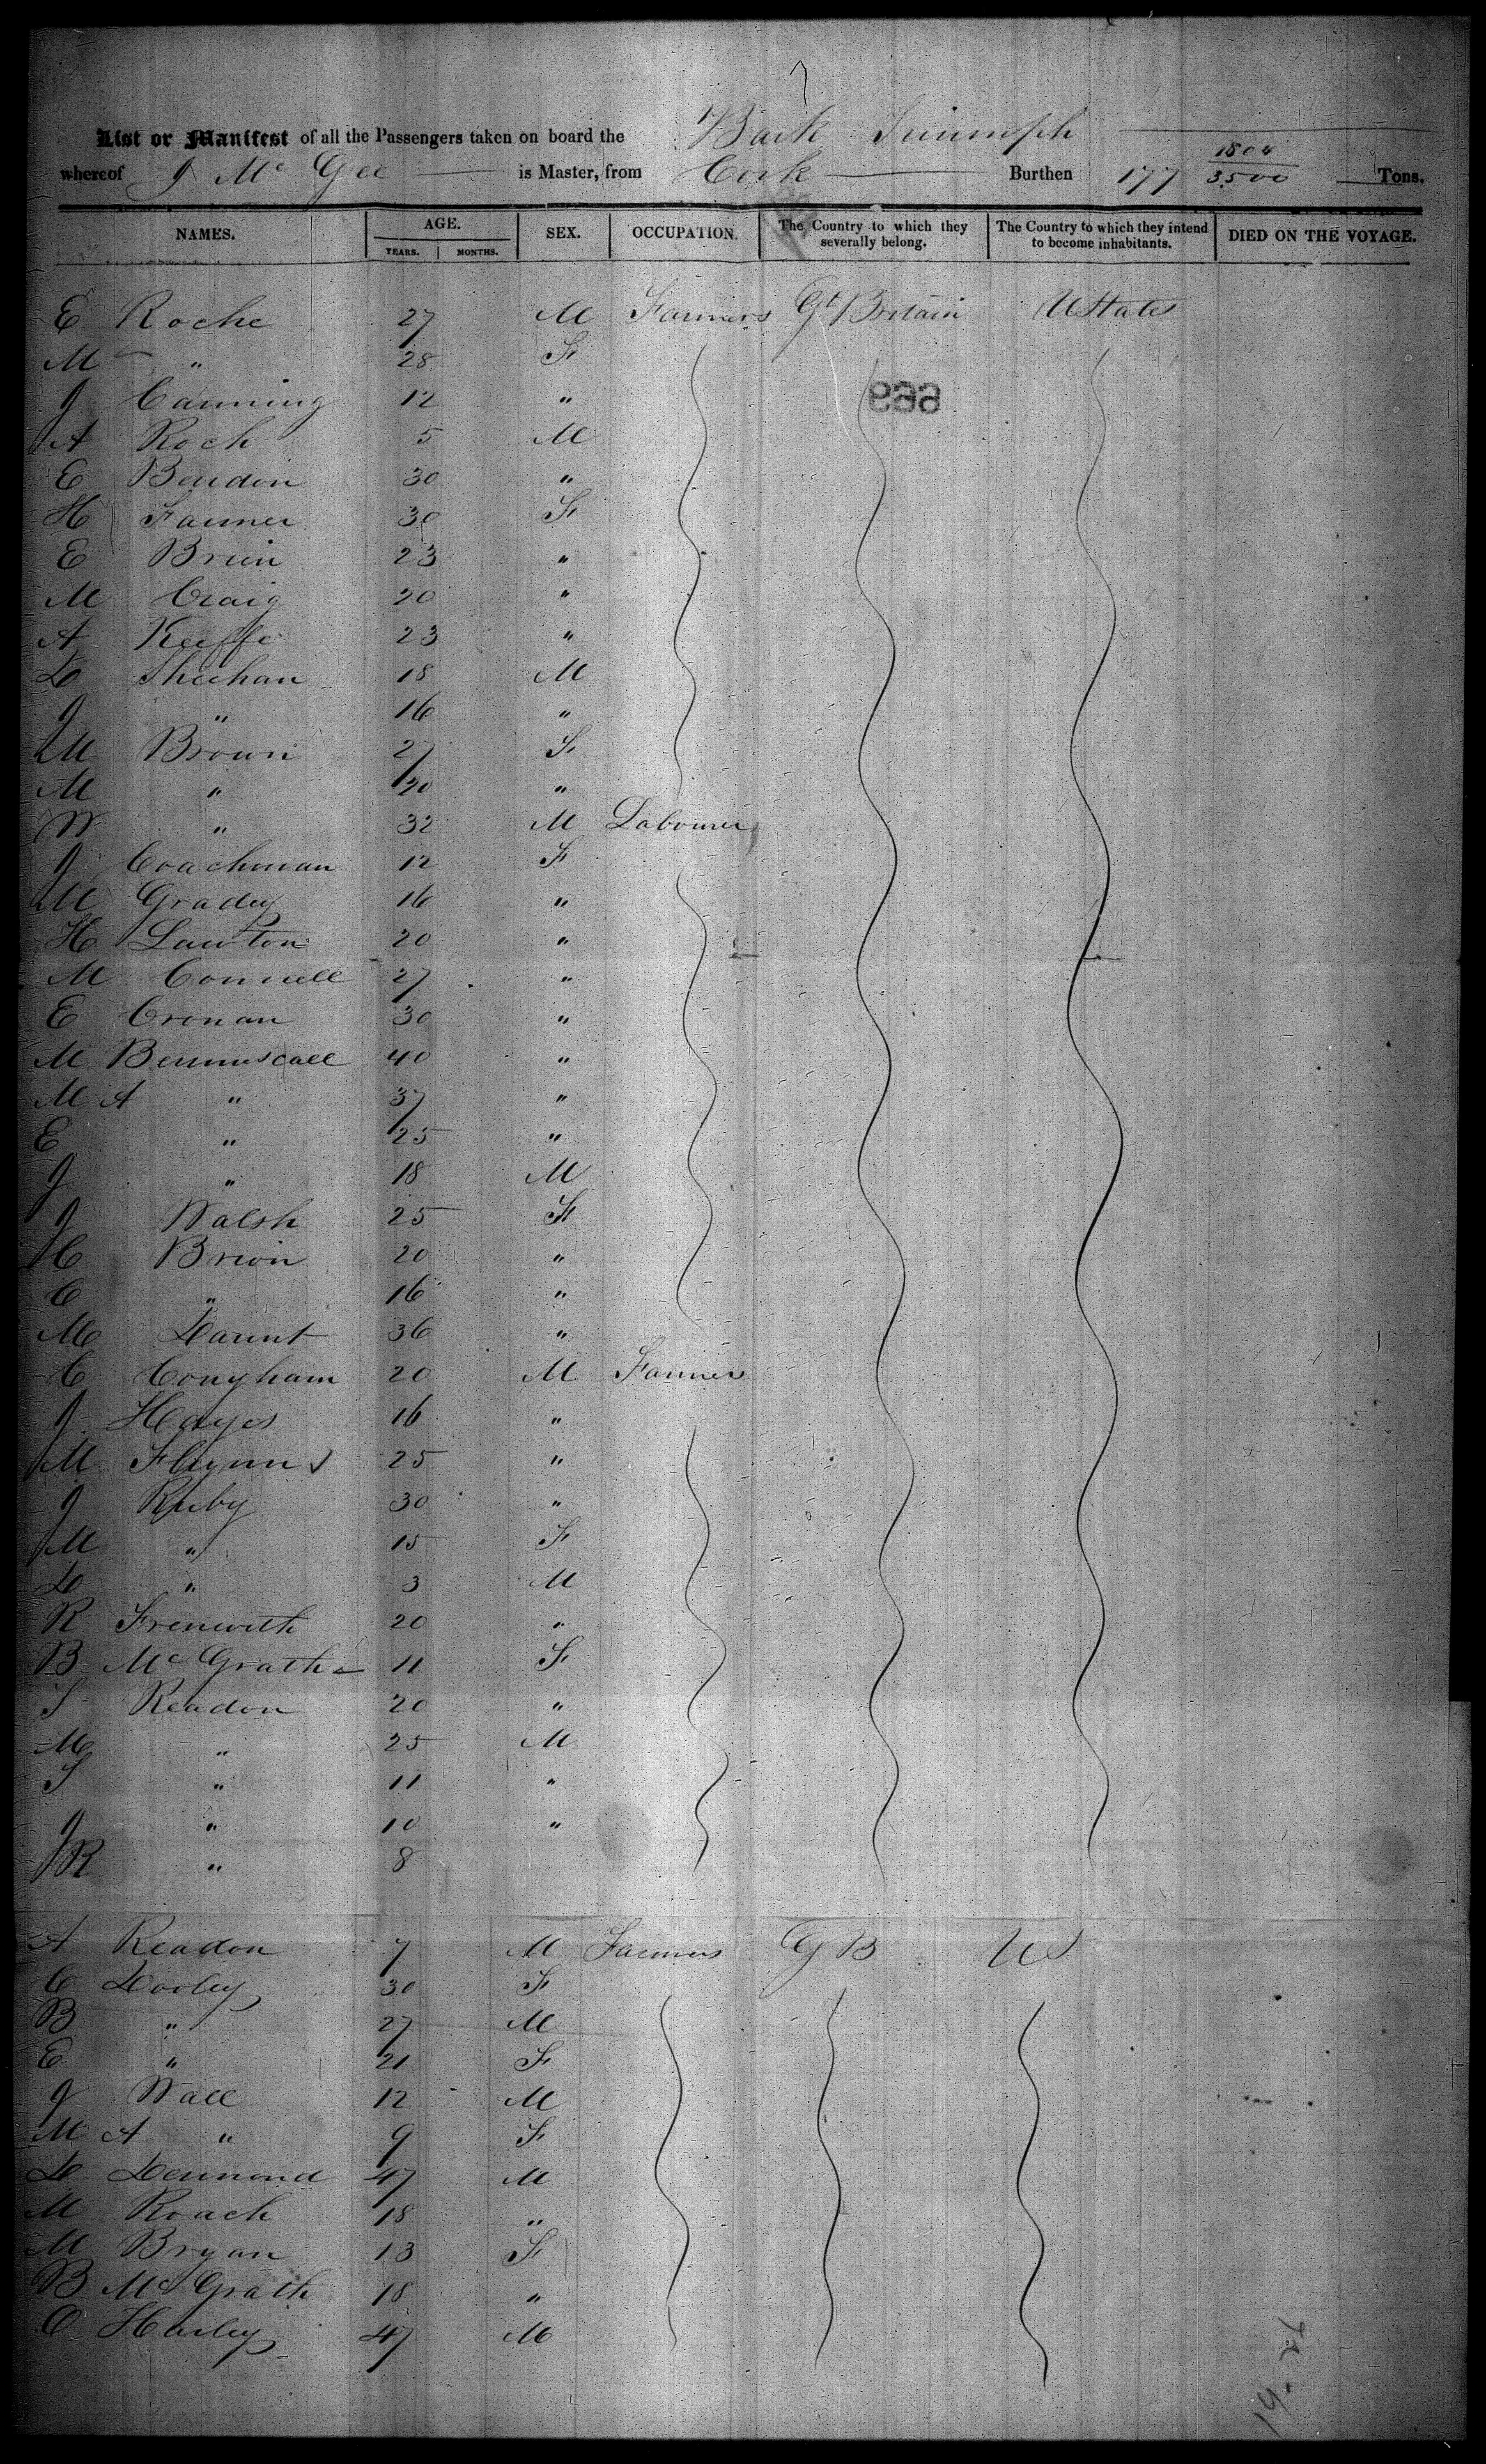 7
List or Manifest of all the Passengers taken on board the Bark Triumph
whereof J Mc Gee is Master, from Cork Burthen 177 1804/3500 Tons.
NAMES. AGE. YEARS. MONTHS. SEX. OCCUPATION. The Country to which they severally belong. The Country to which they intend to become inhabitants. DIED ON THE VOYAGE.
E Roche 27 M Farmers Gt Britain UStates
M " 28 F
669
J Canning 12 "
A Roch 5 M
E 30 "
H Farmer 30 F
E Brien 23 "
M Craig 20 "
A Keeffe 23 "
D Sheehan 18 M
J " 16 "
M Brown 27 F
M " 20 "
W " 32 M Labourer
J Coachman 12 F
M Gradey 16 "
H Lawton 20 "
M Connell 27 "
E Cronan 30 "
M 40 "
M A " 37 "
E " 25 "
J " 18 M
J Walsh 25 F
C Brien 20 "
C " 16 "
M Daunt 36 "
C Conyham 20 M Farmer
J Hayes 16 "
M Flynn 25 "
J Ruby 30 "
M " 15 F
D " 3 M
R 20 "
B Mc Grath 11 F
S Readon 20 "
M " 25 M
S " 11 "
J " 10 "
R " 8
A Readon 7 M Farmers G B US
C Dooley 30 F
B " 27 M
E " 21 F
J Wall 12 M
M A " 9 F
D Desmond 47 M
M Roach 18 "
M Bryan 13 F
B Mc Grath 18 "
O Harley 47 M